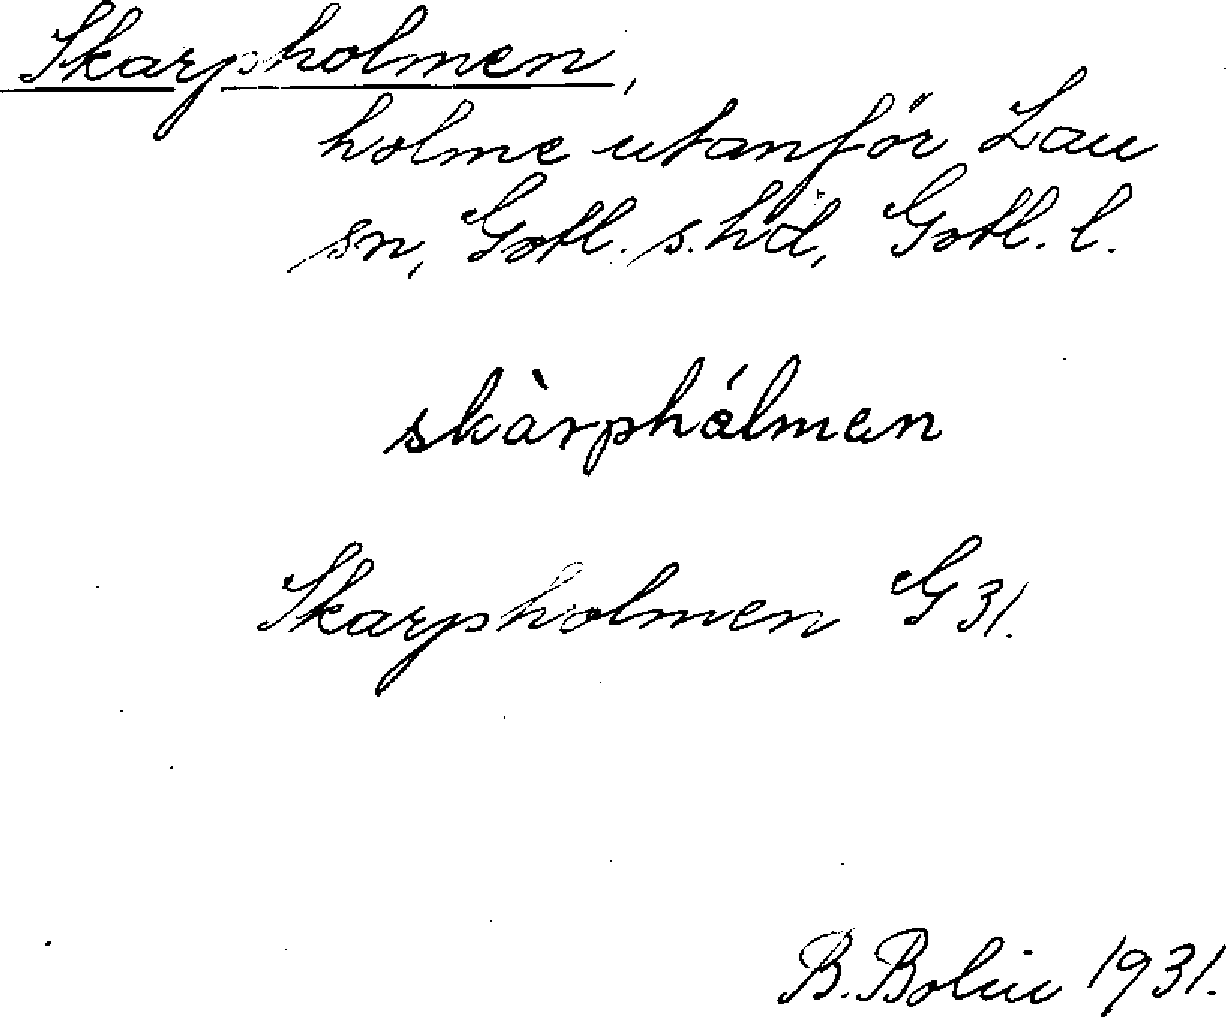 Skarpholmen,
holme utanför Lau
sn, Gotl. s. hd, Gotl. l.
skàrphólmen
Skarpholmen G 31.
B. Bolin 1931.